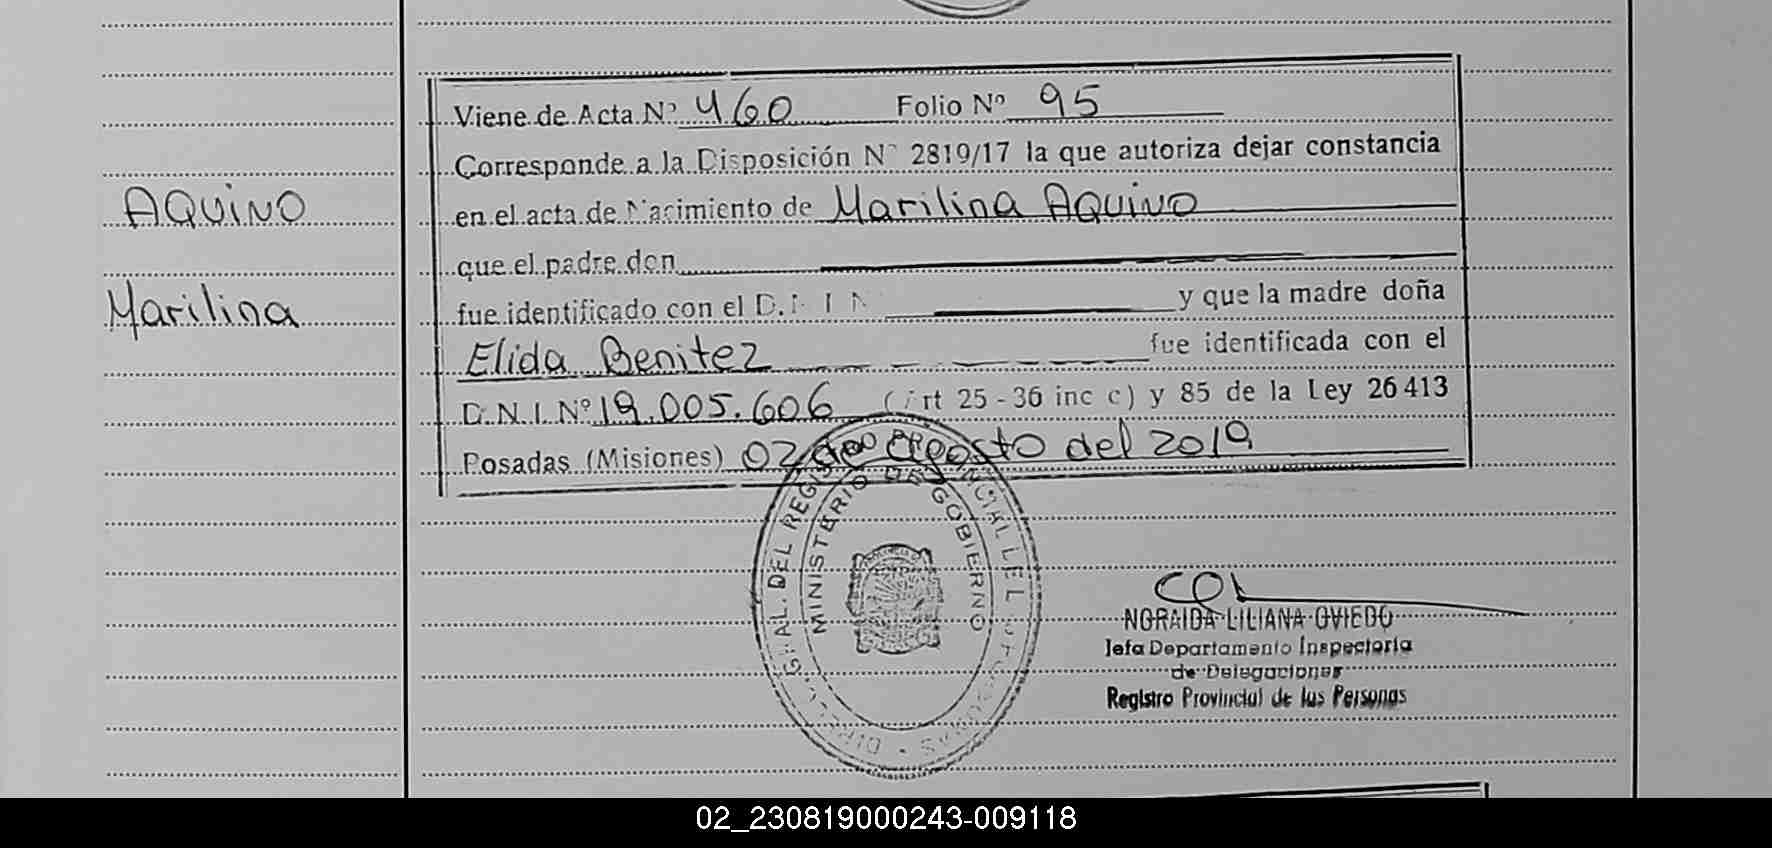 Viene de Acta Nº 460 Folio Nº 95
Corresponde a la Disposición Nº 2819/17 la que autoriza dejar constancia
AQUINO
en el acta de Nacimiento de Marilina AQUINO
que el padre don
Marilina
fue identificado con el D.N.I. Nº y que la madre doña
Elida Benitez fue identificada con el
D.N.I. Nº 19.005.606 (Art 25 - 36 inc c) y 85 de la Ley 26 413
Posadas (Misiones) 02 de Agosto del 2019
MINISTERIO DE GOBIERNO
NORAIDA LILIANA OVIEDO
Jefa Departamento Inspectoria
de Delegaciones
Registro Provincial de las Personas
02_230819000243-009118